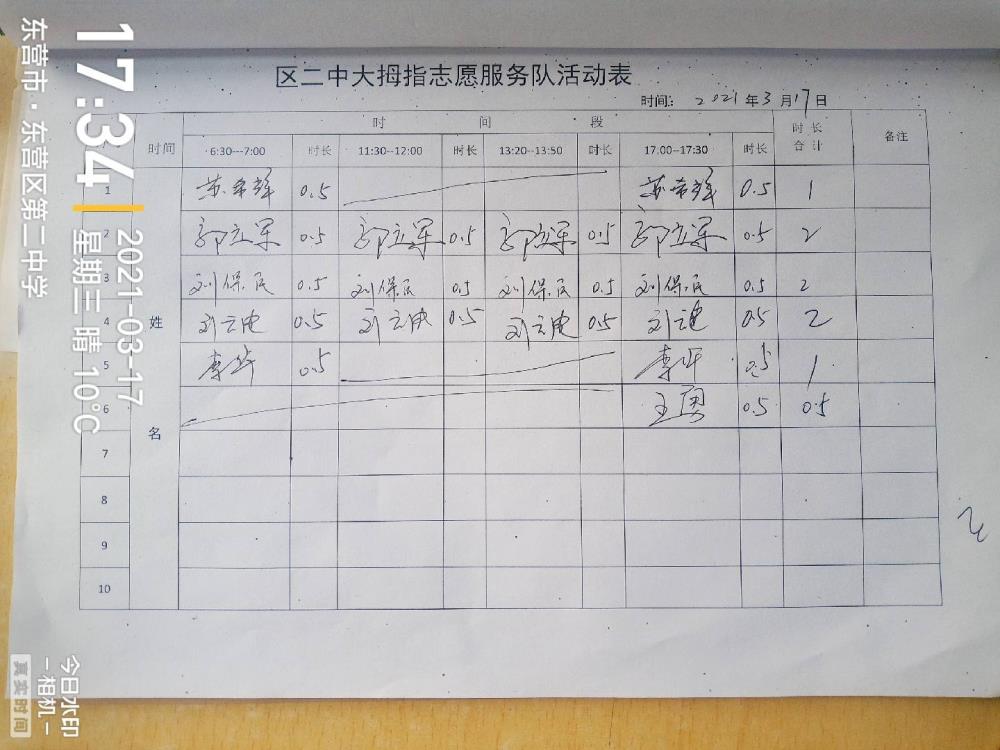 区二中大拇指志愿服务队活动表
时间： 2021 年 3 月 17 日
时间 时 间 段 时 长 合 计 备注
6:30---7:00 时长 11:30--12:00 时长 13:20--13:50 时长 17:00--17:30 时长
姓 名
1 苏希辉 0.5 苏希辉 0.5 1
2 郭立军 0.5 郭立军 0.5 郭立军 0.5 郭立军 0.5 2
3 刘保民 0.5 刘保民 0.5 刘保民 0.5 刘保民 0.5 2
4 刘云 0.5 刘云 0.5 刘云 0.5 刘云 0.5 2
5 李华 0.5 李华 0.5 1
6 王勇 0.5 0.5
7
8
9
10
17:34
2021-03-17
星期三 晴 10℃
东营市·东营区第二中学
今日水印
-相机-
真实时间